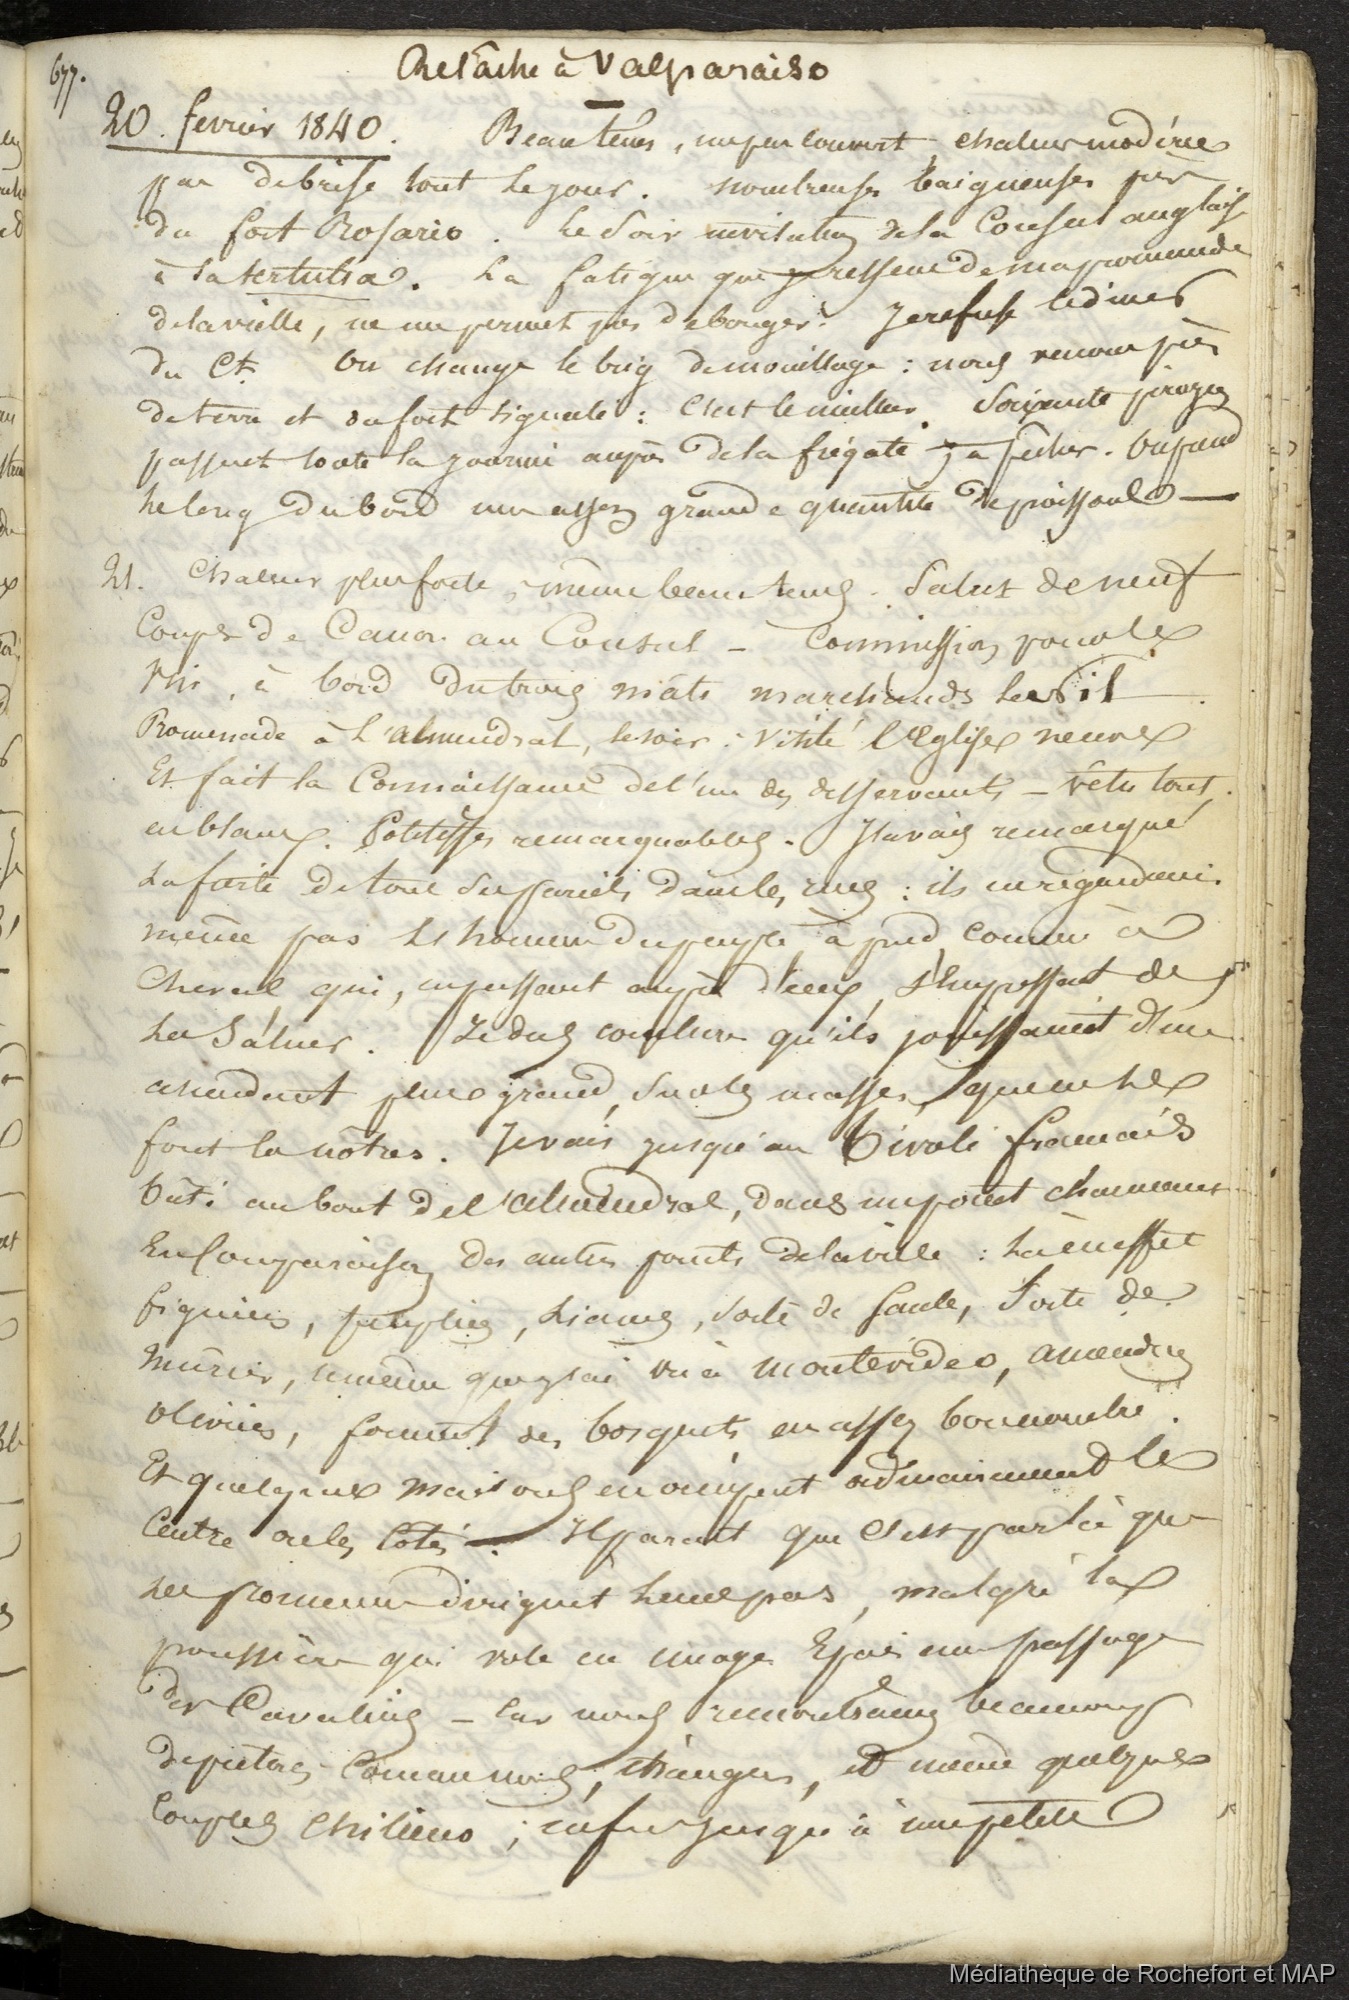 677.
Relâche à Valparaiso
20. fevrier 1840. Beau tems, un peu couvert, chaleur modérée
pas de brise tout le jour. nombreuses baigneuses près
du fort Rosario. Le soir invitation de la Consul anglais
à la tertulia. La fatigue que je ressens de ma promenade
de la veille, ne me permet pas de bouger. Je refuse le diner
du Ct. On change le brig de mouillage : nous venons près
de terre et du fort signalé : c'est le meilleur. Soixante pirogues
passent toute la journée auprès de la frégate à pêcher. On prend
le long du bord une assez grande quantité de poissons —
21. Chaleur plus forte, même beau tems. Salut de neuf
Coups de Canon au Consul — Commission pour le
vin, à bord du trois mâts marchands le Nil
Promenade à l'almendral, le soir : visité l'Eglise neuve
Et fait la Connaissance de l'un des desservants — vêtu tout
en blanc. Politesses remarquables. J'avais remarqué
la fierté de tous ces pariels dans les rues : ils ne regardaient
même pas les hommes du peuple à pied comme à
Cheval qui, en passant auprès d'eux, s'empressent de
les saluer. Je dus conclure qu'ils jouissaient d'un
ascendant plus grand, sur les masses, que ne le
font les nôtres. Je vais jusqu'au Tivoli français
bâti au bout de l'almendral, dans un point charmant
En Comparaison des autres points de la ville : là en effet
figuiers, peupliers, lianes, sorte de saule, sorte de
Mûrier, le même que j'ai vu à montévideo, amandiers
oliviers, forment des bosquets en assez bon nombre.
Et quelques maisons en occupent ordinairement le
Centre ou les Côtés —. Il parait que c'est par là que
les promeneurs dirigent leurs pas, malgré la
poussière qui vole en nuage Epais au passage
des Cavaliers — car nous rencontrâmes beaucoup
de piétons, comme nous, étrangers, et même quelques
Couples chiliens ; enfin jusqu'à une petite
Médiathèque de Rochefort et MAP